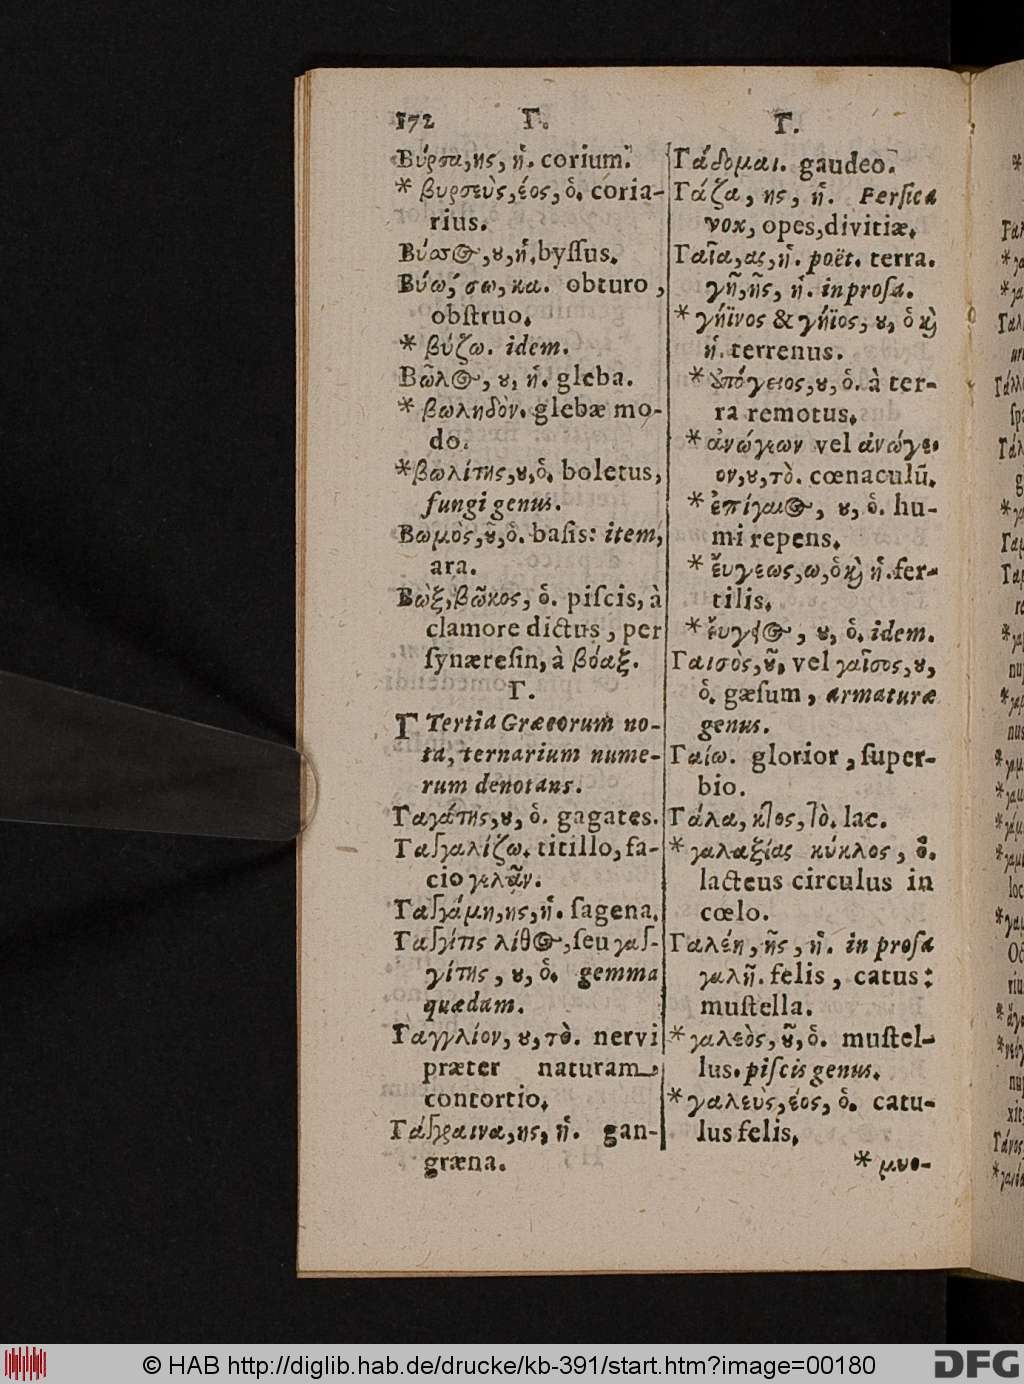 172 Γ. Γ.
Βύρσα, ης, ἡ. corium.
* βυρσεὺς, έος, ὁ. coria-
rius.
Βύσσος, ου, ἡ. byſſus.
Βύω, σω, κα. obturo,
obſtruo.
* βύζω. idem.
Βῶλος, ου, ἡ. gleba.
* βωληδὸν. glebæ mo-
do.
* βωλίτης, ου, ὁ. boletus,
fungi genus.
Βωμὸς, οῦ, ὁ. baſis: item,
ara.
Βὼξ, βῶκος, ὁ. piſcis, à
clamore dictus, per
ſynæreſin, à βόαξ.
Γ.
Γ Tertia Græcorum no-
ta, ternarium nume-
rum denotans.
Γαγάτης, ου, ὁ. gagates.
Γαγγαλίζω. titillo, fa-
cio γελᾶν.
Γαγγάμη, ης, ἡ. ſagena.
Γαγγίτις λίθος, ſeu γαγ-
γίτης, ου, ὁ. gemma
quædam.
Γαγγλίον, ου, τὸ. nervi
præter naturam
contortio.
Γάγγραινα, ης, ἡ. gan-
græna.
Γάδομαι. gaudeo.
Γάζα, ης, ἡ. Perſica
vox, opes, divitiæ.
Γαῖα, ας, ἡ. poët. terra.
γῆ, ῆς, ἡ. in proſa.
* γήϊνος & γήϊος, ου, ὁ καὶ
ἡ. terrenus.
* ὑπόγειος, ου, ὁ. à ter-
ra remotus.
* ἀνώγεων vel ἀνώγε-
ον, ου, τὸ. cœnaculū.
* ἐπίγαιος, ου, ὁ. hu-
mi repens.
* εὔγεως, ω, ὁ καὶ ἡ. fer-
tilis.
* εὔγειος, ου, ὁ. idem.
Γαισὸς, οῦ, vel γαῖσος, ου,
ὁ. gæſum, armaturæ
genus.
Γαίω. glorior, ſuper-
bio.
Γάλα, κτος, τὸ. lac.
* γαλαξίας κύκλος, ὁ.
lacteus circulus in
cœlo.
Γαλέη, ῆς, ἡ. in proſa
γαλῆ. felis, catus:
muſtella.
* γαλεὸς, οῦ, ὁ. muſtel-
lus. piſcis genus.
* γαλεὺς, έος, ὁ. catu-
lus felis.
* μυο-
© HAB http://diglib.hab.de/drucke/kb-391/start.htm?image=00180
DFG